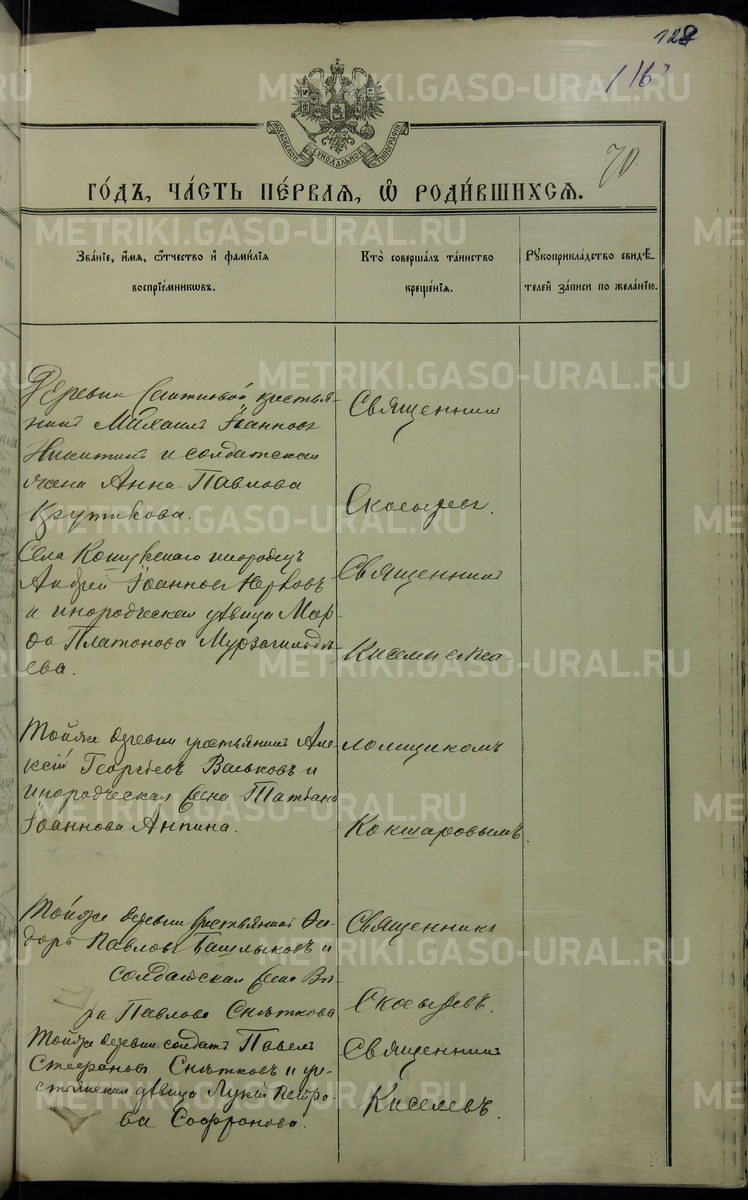 128
116
METRIKI.GASO-URAL.RU
МОСКОВСКОЙ СѴНОДАЛЬНОЙ ТИПОГРАФІИ
70.
ГО́ДЪ, ЧА́СТЬ ПЕ́РВАѦ, Ѡ҆ РОДИ́ВШИХСѦ.
Зва́нїе, и҆́мѧ, ѻ҆́тчество и҆ фами́лїѧ
воспрїе́мникѡвъ.
Кто̀ соверша́лъ та́инство
креще́нїѧ.
Рꙋкоприкла́дство свидѣ́-
телей за́писи по жела́нїю.
Деревни крестья-
нинъ Михаилъ Іоанновъ
Никитинъ и солдатская
жена Анна Павлова
Крутикова.
Священникъ
Скосыревъ.
Села инородецъ
Андрей Іоанновъ
и инородческая дѣвица Мар-
ѳа Платонова
ева.
Священникъ
Тойже деревни крестьянинъ Але-
ксій Георгіевъ Вальковъ и
инородческая жена Татьяна
Іоаннова Анпина.
Кокшаровымъ
Тойже деревни крестьянинъ Ѳео-
доръ Павловъ Башлыковъ и
солдатская жена Вѣ-
ра Павлова Снѣткова
Священникъ
Скосыревъ.
Тойже деревни солдатъ Павелъ
Стефановъ Снѣтковъ и кре-
стьянская дѣвица Петро-
ва Софронова.
Священникъ
Киселевъ.